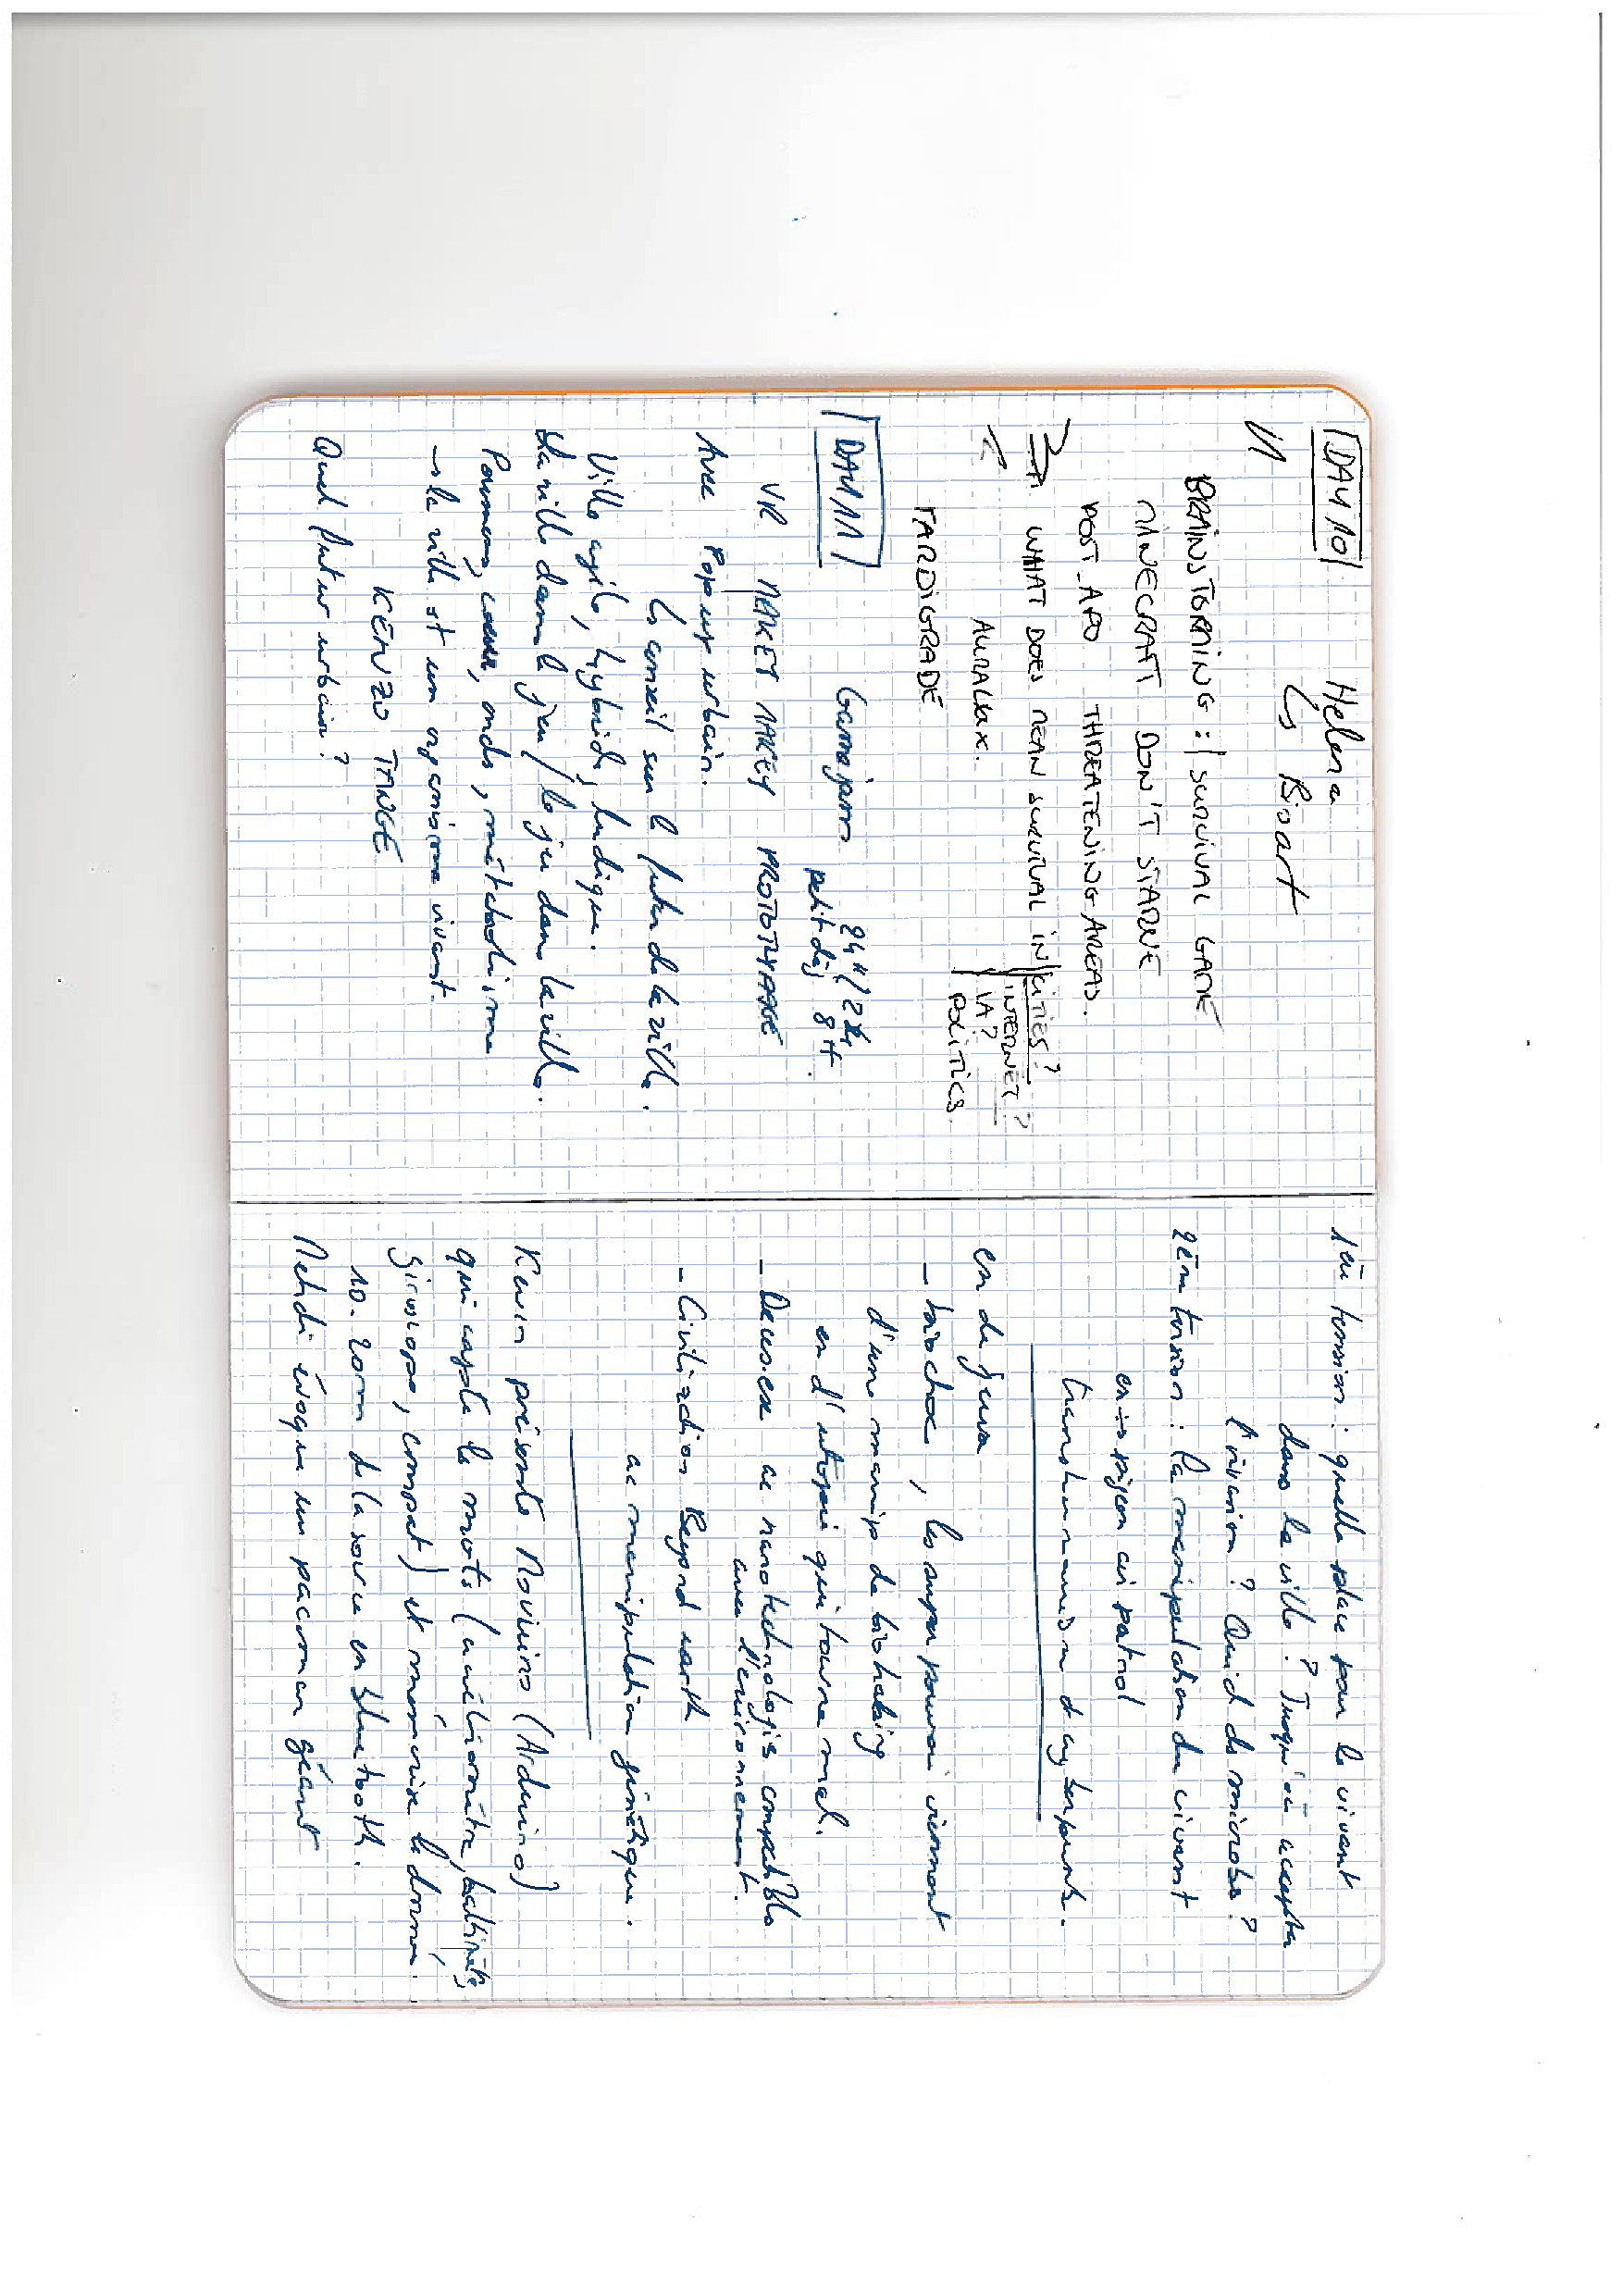 |DAY 10| Helena
11 ↳ Bioart
BRAINSTORMING : | SURVIVAL GAME
MINECRAFT DON'T STARVE
POST-APO THREATENING AREAS.
→ WHAT DOES MEAN SURVIVAL IN CITIES?
INTERNET?
AURALUX. IA?
POLITICS
TARDIGRADE
|DAY 11| Gamejam 24H/24
petit déj 8H.
VR MAKEY MAKEY PROTOTYPAGE
Avec Pop up urbain.
↳ conseil sur le futur de la ville.
Ville agile, hybride, ludique.
La ville dans le jeu / le jeu dans la ville.
Poumons, coeur, ondes, métabolisme
→ la ville est un organisme vivant.
KENZO TANGE
Quel futur urbain?
1ère tension : quelle place pour le vivant
dans la ville ? Jusqu'où accepter
l'invasion ? Quid des microbes ?
2ème tension : la manipulation du vivant
ex → pigeon air patrol
transhumanisme day
ex de jeux
- bioshock, les super pouvoirs viennent
d'une manip de biohacking
en d'utopie qui tourne mal.
- Deus ex ac nanotechnologies compatibles
avec l'environnement.
- Civilization Beyond earth
ac manipulation génétique.
Kevin présente Movuino (Arduino)
qui capte le mvts (accéléromètre,
giroscope, compas) et mémorise le données.
10-20m de la source en bluetooth.
Mehdi évoque un pacman géant